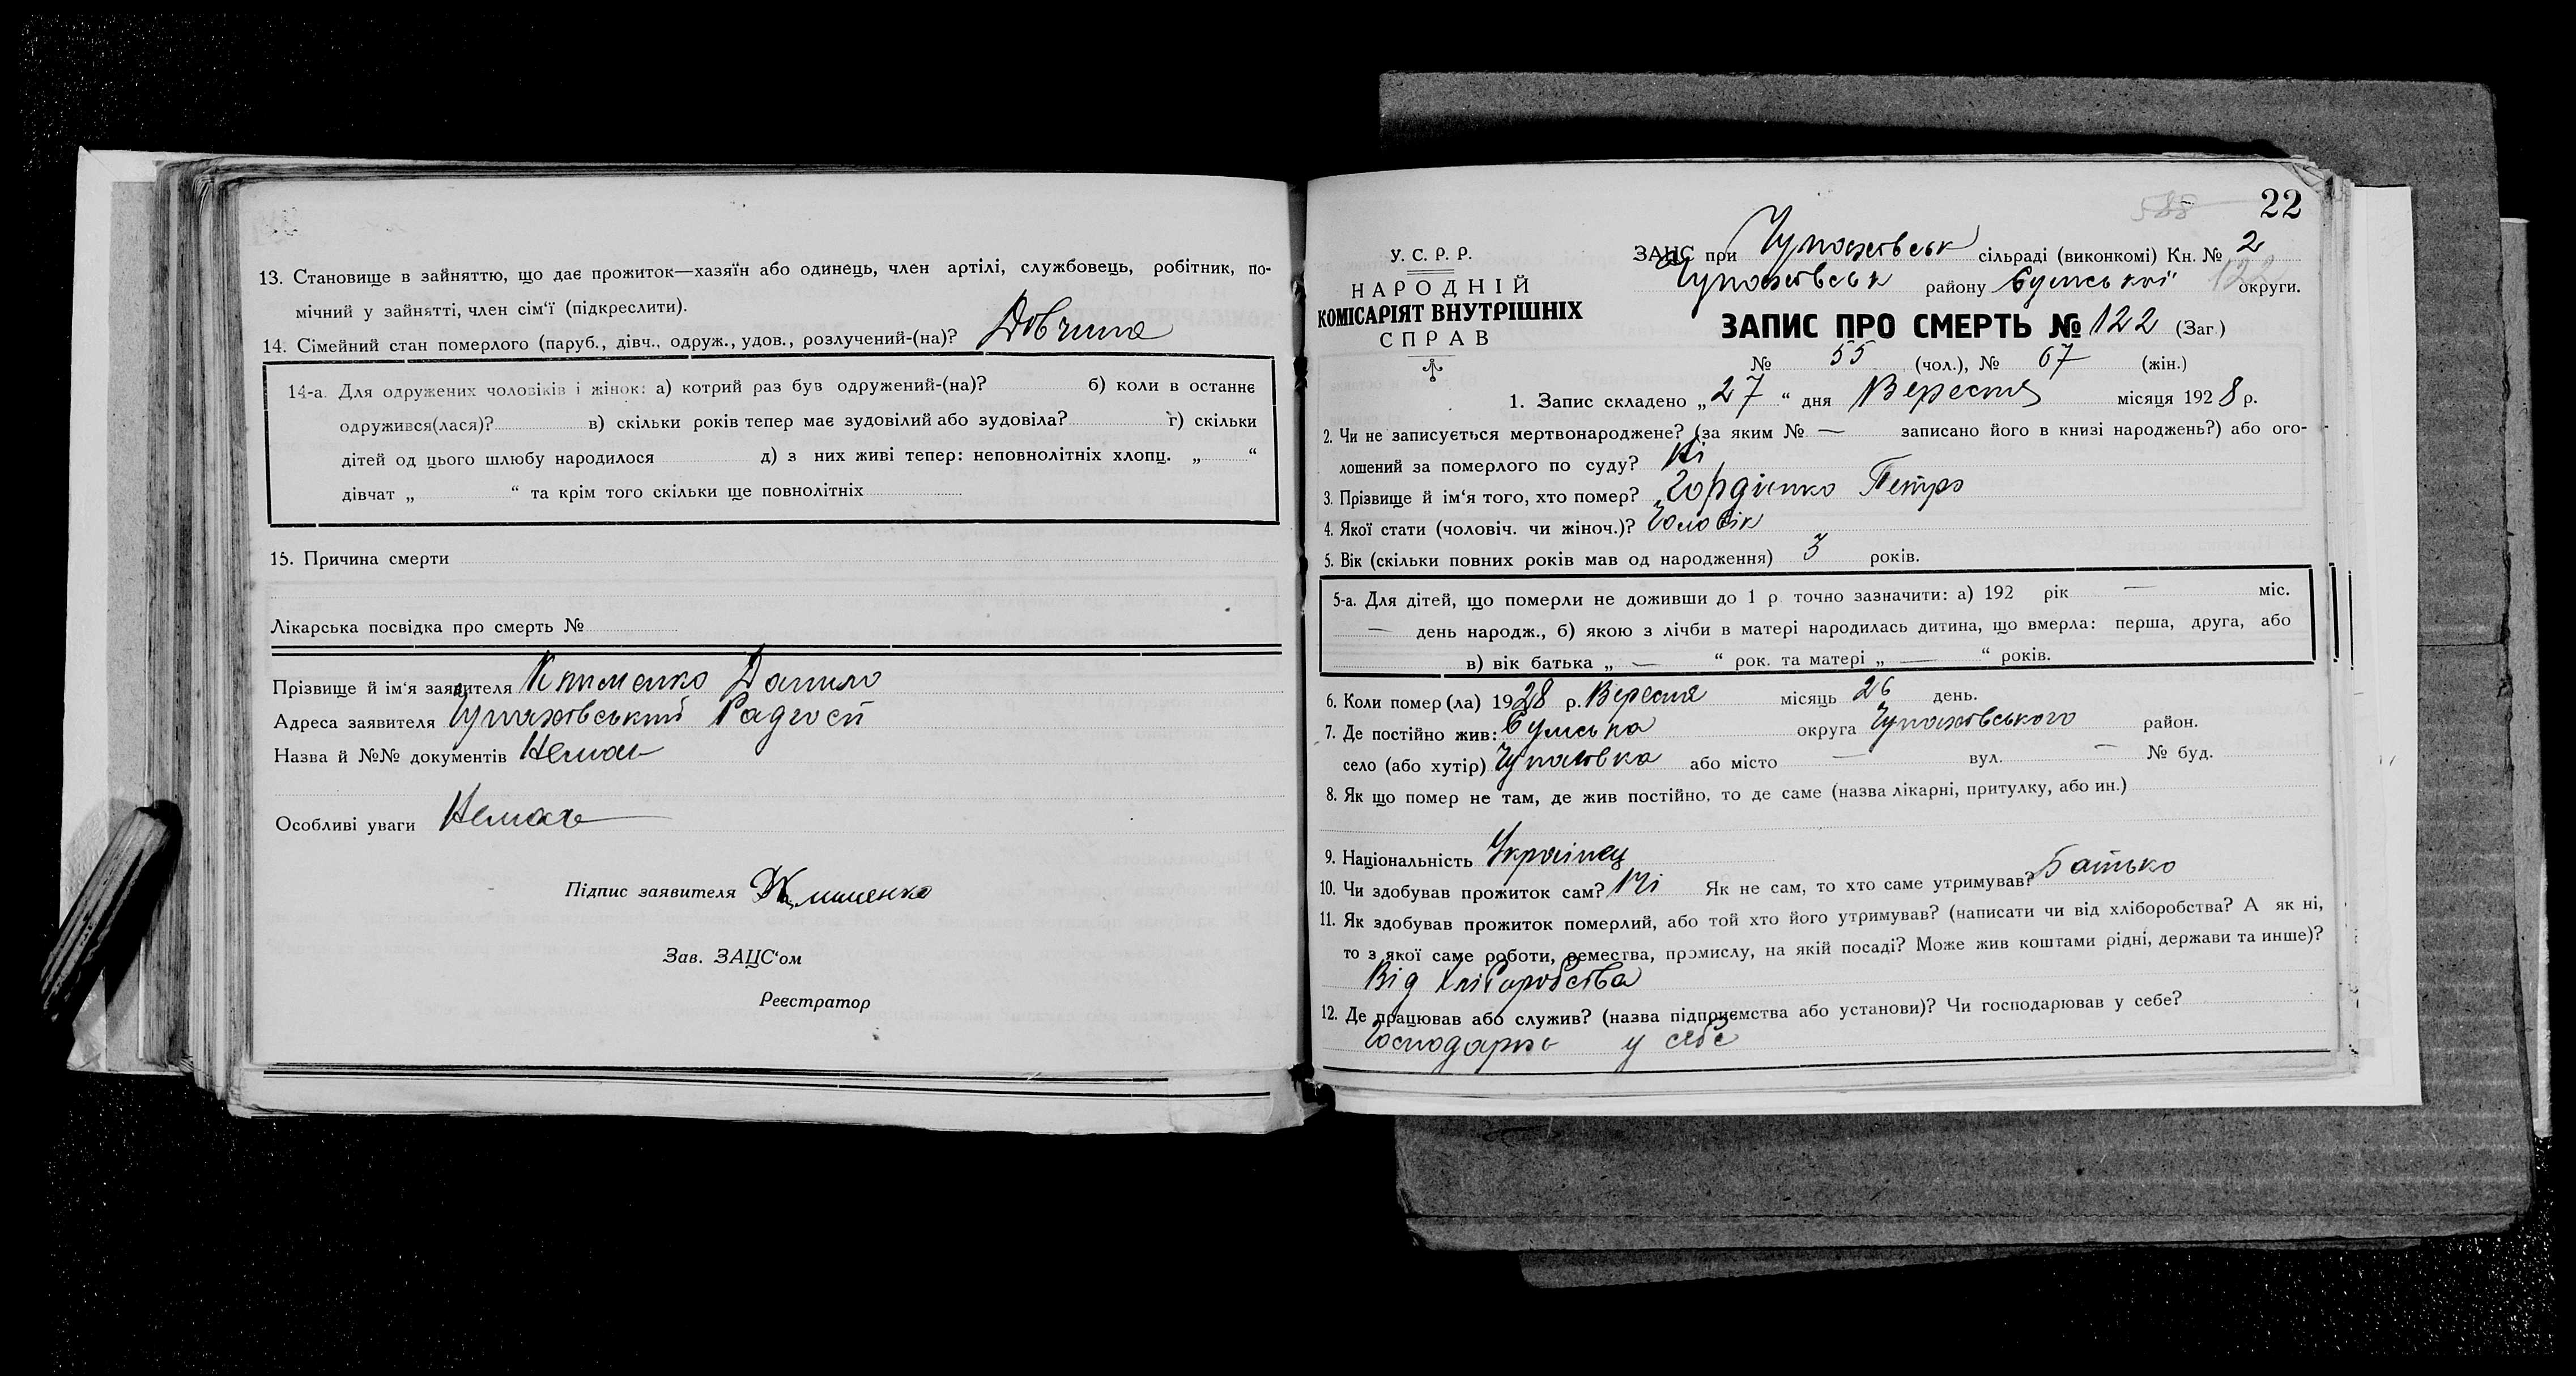 13. Становище в зайняттю, що дає прожиток—хазяїн або одинець, член артілі, службовець, робітник, по-
мічний у зайнятті, член сім'ї (підкреслити).
14. Сімейний стан померлого (паруб., дівч., одруж., удов., розлучений-(на)? Довчина
14-а. Для одружених чоловіків і жінок: а) котрий раз був одружений-(на)? б) коли в останнє
одружився(лася)? в) скільки років тепер має зудовілий або зудовіла? г) скільки
дітей од цього шлюбу народилося д) з них живі тепер: неповнолітніх хлопц. „ “
дівчат „ “ та крім того скільки ще повнолітніх
15. Причина смерти
Лікарська посвідка про смерть №
Прізвище й ім'я заявителя Клименко Данило
Адреса заявителя Чупахівський Радгосп
Назва й №№ документів Немає
Особливі уваги Немає
Підпис заявителя Клименко
Зав. ЗАЦС'ом
Реєстратор
588 22
У. С. Р. Р.
НАРОДНІЙ
КОМІСАРІЯТ ВНУТРІШНІХ
СПРАВ
ЗАЦС при Чупахівськ сільраді (виконкомі) Кн. № 2
Чупахівськ району Сумської округи. 122
ЗАПИС ПРО СМЕРТЬ № 122 (Заг.)
№ 55 (чол.), № 67 (жін.)
1. Запис складено „27“ дня Вересня місяця 1928 р.
2. Чи не записується мертвонароджене? (за яким № — записано його в книзі народжень?) або ого-
лошений за померлого по суду? Ні
3. Прізвище й ім'я того, хто помер? Гордієнко Петро
4. Якої стати (чоловіч. чи жіноч.)? Чоловік
5. Вік (скільки повних років мав од народження) 3 років.
5-а. Для дітей, що померли не доживши до 1 р. точно зазначити: а) 192 рік — міс.
— день народж., б) якою з лічби в матері народилась дитина, що вмерла: перша, друга, або
в) вік батька „ — “ рок. та матері „ — “ років.
6. Коли помер (ла) 1928 р. Вересня місяць 26 день.
7. Де постійно жив: Сумська округа Чупахівського район.
село (або хутір) Чупахівка або місто — вул. — № буд.
8. Як що помер не там, де жив постійно, то де саме (назва лікарні, притулку, або ин.)
9. Національність Українец
10. Чи здобував прожиток сам? Ні Як не сам, то хто саме утримував? Батько
11. Як здобував прожиток померлий, або той хто його утримував? (написати чи від хліборобства? А як ні,
то з якої саме роботи, ремества, промислу, на якій посаді? Може жив коштами рідні, держави та инше)?
Від хліборобства
12. Де працював або служив? (назва підприємства або установи)? Чи господарював у себе?
у себе